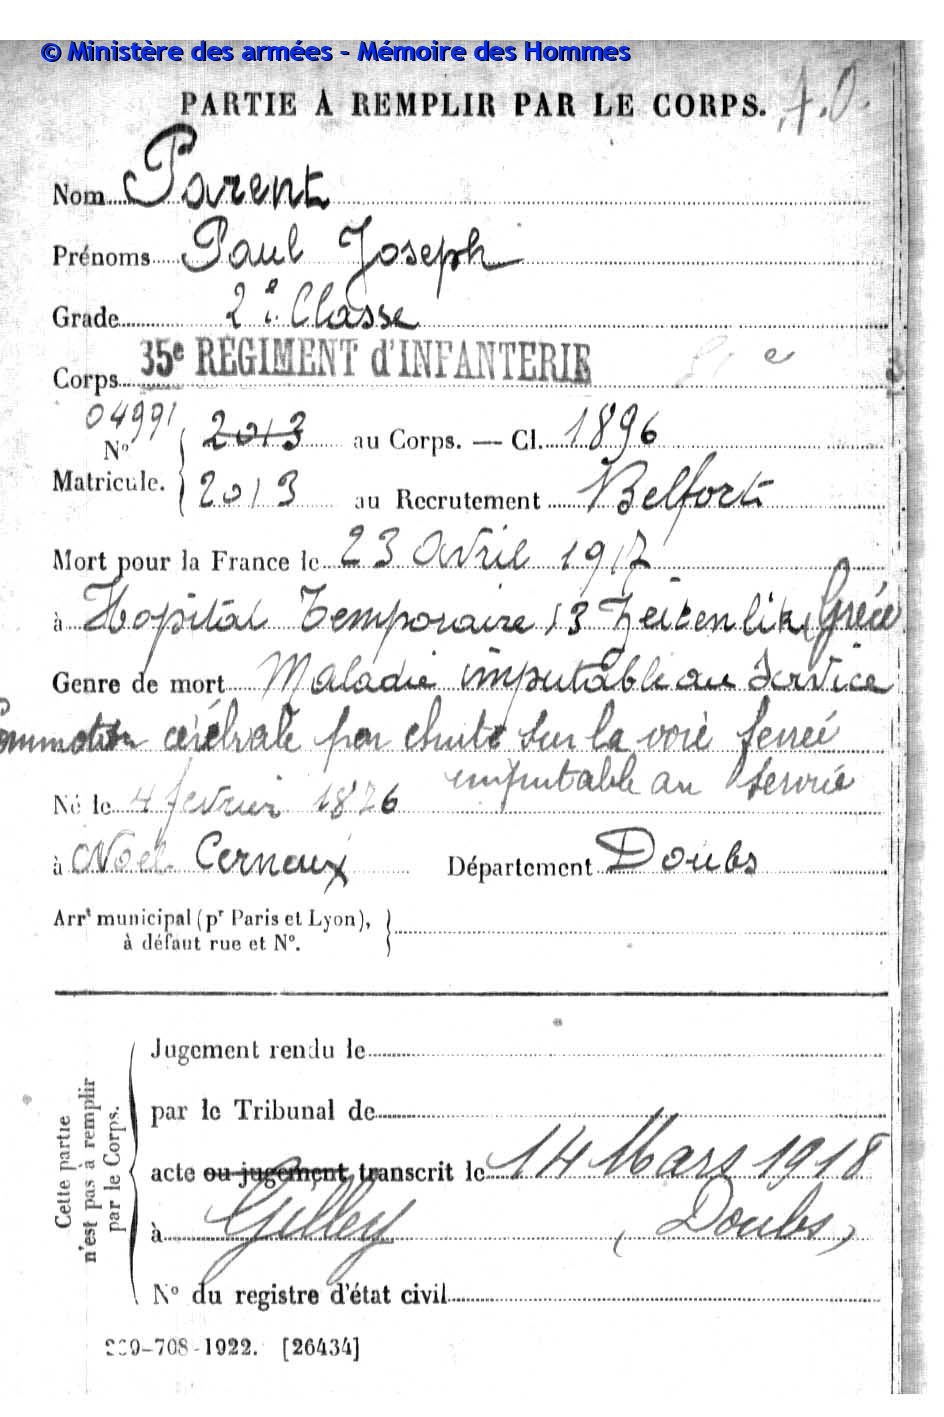 © Ministère des armées - Mémoire des Hommes
PARTIE À REMPLIR PAR LE CORPS.
Nom Parent
Prénoms Paul Joseph
Grade 2e Classe
Corps 35e RÉGIMENT d'INFANTERIE
04991
N° 2013 au Corps. — Cl. 1896
Matricule. 2013 au Recrutement Belfort
Mort pour la France le 23 Avril 1917
à Hopital Temporaire 13 Zeitenlik (Grèce
Genre de mort Maladie imputable au Service
Commotion cérébrale par chute sur la voie ferrée
imputable au service
Né le 4 février 1876
à Noël Cerneux Département Doubs
Arrt municipal (pr Paris et Lyon),
à défaut rue et N°.
Cette partie
n'est pas à remplir
par le Corps.
Jugement rendu le
par le Tribunal de
acte ou jugement transcrit le 14 Mars 1918
à Gilley (Doubs)
N° du registre d'état civil
-708-1922. [26434]